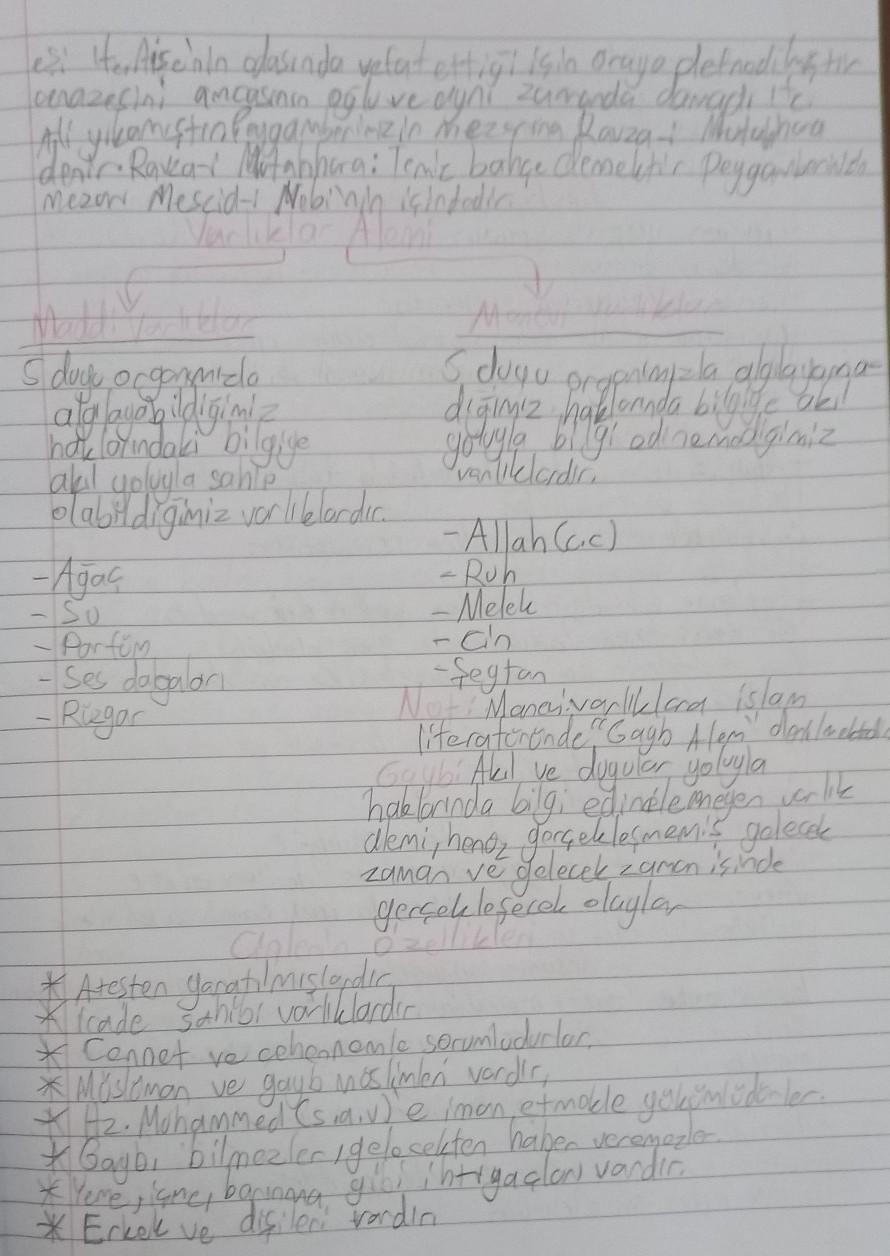 eşi Hz. Aişe'nin odasında vefat ettiği için oraya defnedilmiştir
cenazesini amcasının oğlu ve aynı zamanda damadı Hz.
Ali yıkamıştır. Peygamberimizin mezarına Ravza-i Mutahhara
denir. Ravza-i Mutahhara: Temiz bahçe demektir Peygamberimizin
mezarı Mescid-i Nebi'nin içindedir.
Varlıklar Alemi
Maddi Varlıklar
5 duyu organımızla
algılayabildiğimiz
haklarındaki bilgiye
akıl yoluyla sahip
olabildiğimiz varlıklardır.
- Ağaç
- Su
- Parfüm
- Ses dalgaları
- Rüzgar
Manevi Varlıklar
5 duyu organımızla algılayama-
dığımız haklarında bilgiye akıl
yoluyla bilgi edinemediğimiz
varlıklardır.
- Allah (c.c)
- Ruh
- Melek
- Cin
- Şeytan
Not: Manevi varlıklara islam
literatüründe "Gayb Alem"
Gayb: Akıl ve duyular yoluyla
haklarında bilgi edinilemeyen varlık
alemi, henüz gerçekleşmemiş gelecek
zaman ve gelecek zaman içinde
gerçekleşecek olaylar
Cinlerin Özellikleri
* Ateşten yaratılmışlardır
* İrade sahibi varlıklardır
* Cennet ve cehennemle sorumludurlar.
* Müslüman ve gayb müslimleri vardır,
* Hz. Muhammed (s.a.v)'e iman etmekle yükümlüdürler.
* Gaybı bilmezler, gelecekten haber veremezler
* Yeme, içme, barınma gibi ihtiyaçları vardır.
* Erkek ve dişileri vardır